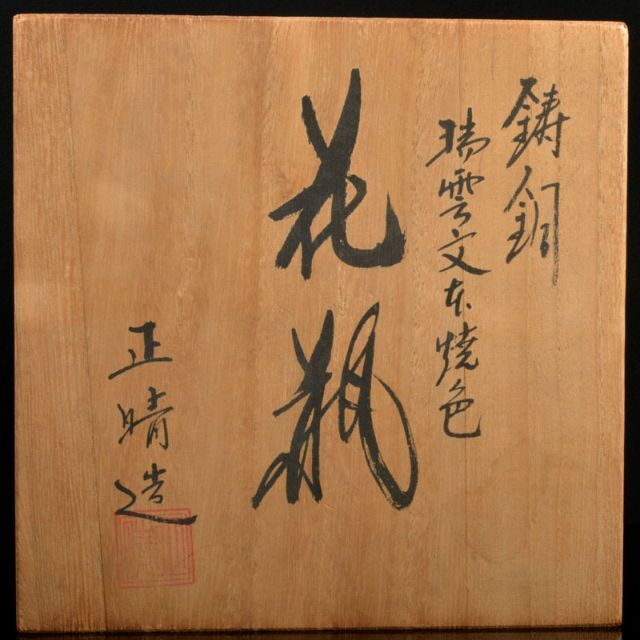 鋳銅
瑞雲文本焼色
花瓶
正晴造